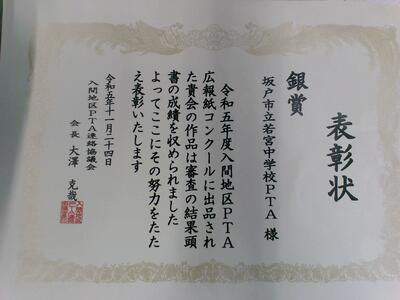 表彰状
銀賞
坂戸市立若宮中学校PTA 様
令和五年度入間地区PTA
広報紙コンクールに出品され
た貴会の作品は審査の結果頭
書の成績を収められました
よってここにその努力をたた
え表彰いたします
令和五年十一月二十四日
入間地区PTA連絡協議会
会長 大澤 克哉